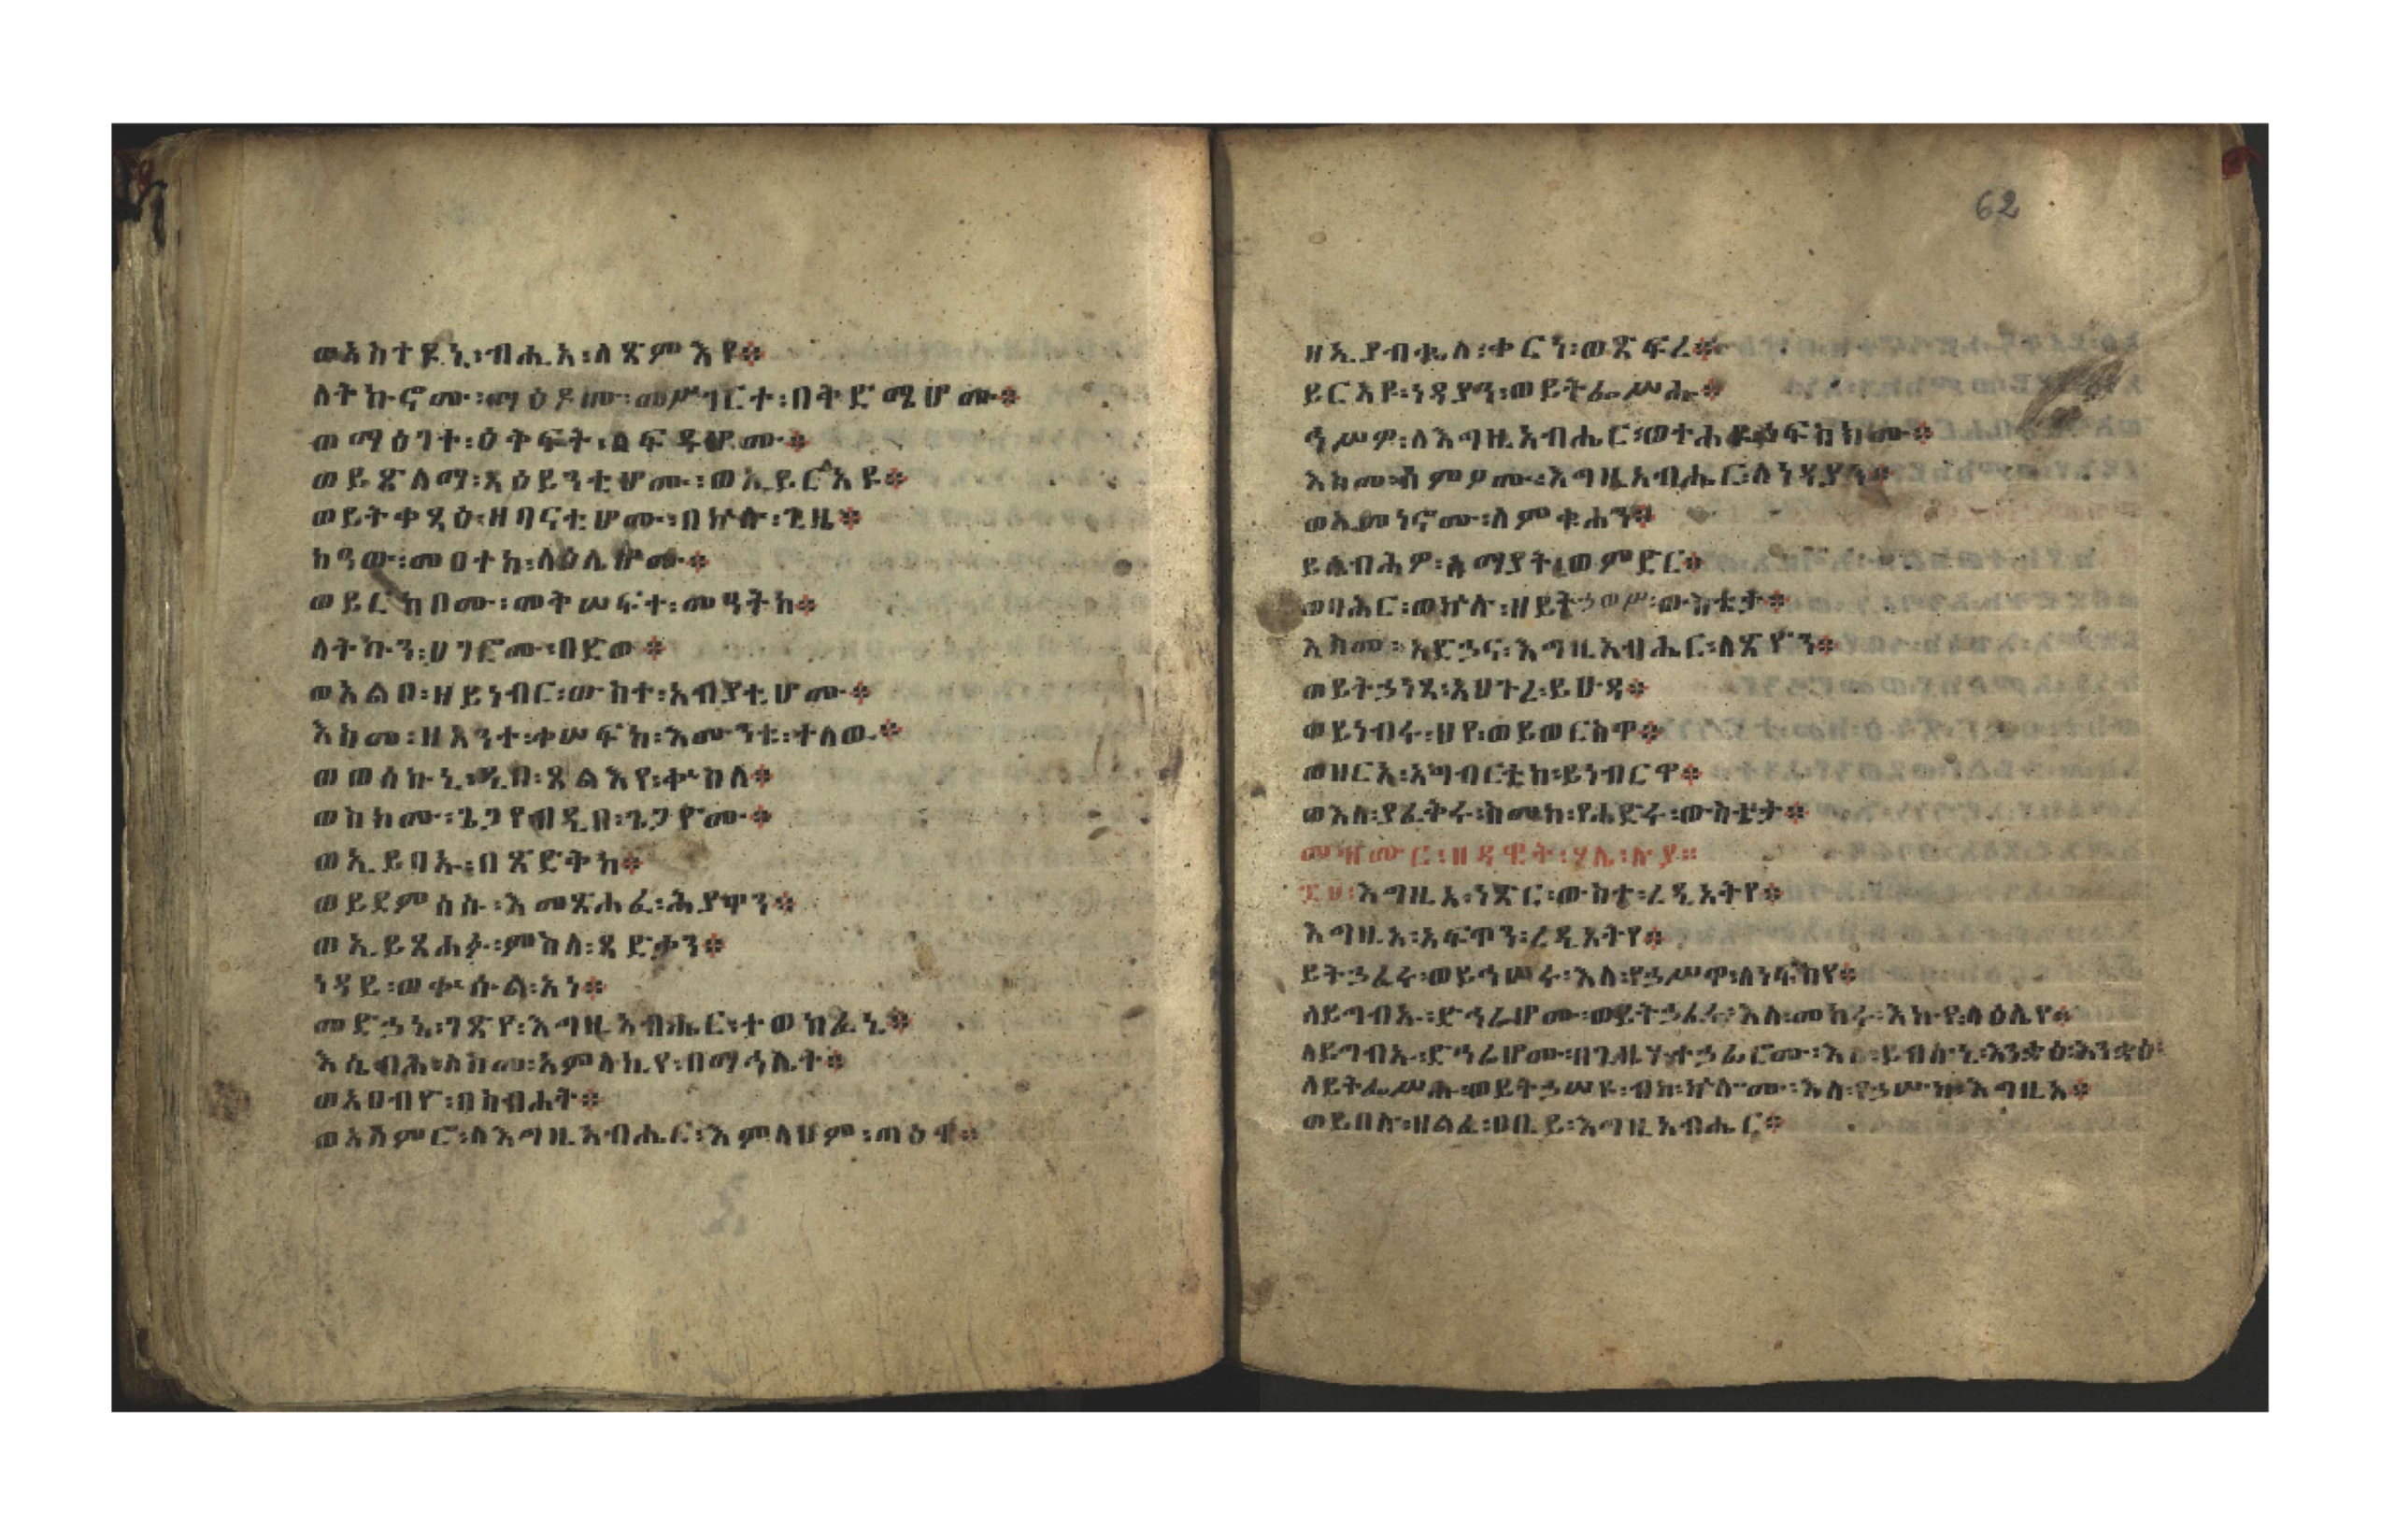 ወአስተዩኒ፡ብሒአ፡ለጽምእየ፨
ለትኩኖሙ፡ማዕዶሙ፡መሥገርተ፡በቅድሜሆሙ፨
ወማዕገተ፡ዕቅፍት፡ለፍዳሆሙ፨
ወይጽለማ፡አዕይንቲሆሙ፡ወኢይርአዩ፨
ወይትቀጻዕ፡ዘባናቲሆሙ፡በኵሉ፡ጊዜ፨
ከዓው፡መዐተከ፡ላዕሌሆሙ፨
ወይርከቦሙ፡መቅሠፍተ፡መዓትከ፨
ለትኩን፡ሀገሮሙ፡በድወ፨
ወአልቦ፡ዘይነብር፡ውስተ፡አብያቲሆሙ፨
እስመ፡ዘአንተ፡ቀሠፍከ፡እሙንቱ፡ተለወ፨
ወወሰኩኒ፡ዲበ፡ጸልእየ፡ቍስለ፨
ወስኮሙ፡ጌጋየ፡በዲበ፡ጌጋዮሙ፨
ወኢይባኡ፡በጽድቅከ፨
ወይደምሰሱ፡እመጽሐፈ፡ሕያዋን፨
ወኢይጸሐፉ፡ምስለ፡ጻድቃን፨
ነዳይ፡ወቍሱል፡አነ፨
መድኃኔ፡ገጽየ፡እግዚአብሔር፡ተወከፈኒ፨
እሴብሕ፡ለስመ፡አምላኪየ፡በማኅሌት፨
ወአዐብዮ፡በስብሐት፨
ወአሥምሮ፡ለእግዚአብሔር፡እምላህም፡ጣዕዋ፨
62
ዘኢያብቈለ፡ቀርነ፡ወጽፍረ፨
ይርአዩ፡ነዳያን፡ወይትፌሥሑ፨
ኅሥዎ፡ለእግዚአብሔር፡ወተሐዩ፡ነፍስክሙ፨
እስመ፡ሰምዖሙ፡እግዚአብሔር፡ለነዳያን፨
ወኢመነኖሙ፡ለሙቁሐን፨
ይሴብሕዎ፡ሰማያት፡ወምድር፨
ወባሕር፡ወኵሉ፡ዘይትኃወሥ፡ውስቴታ፨
እስመ፡አድኃና፡እግዚአብሔር፡ለጽዮን፨
ወይትኃነጻ፡አህጉረ፡ይሁዳ፨
ወይነብሩ፡ህየ፡ወይወርስዋ፨
ወዘርአ፡አግብርቲከ፡ይነብርዋ፨
ወእለ፡ያፈቅሩ፡ስመከ፡የሐድሩ፡ውስቴታ፨
መዝሙር፡ዘዳዊት፡ሃሌ፡ሉያ።
እግዚአ፡ነጽር፡ውስተ፡ረዲአትየ፨
እግዚአ፡አፍጥን፡ረዲአትየ፨
ይትኃፈሩ፡ወይኅሠሩ፡እለ፡የኃሥዋ፡ለነፍስየ፨
ለይግብኡ፡ድኅሬሆሙ፡ወይትኃፈሩ፡እለ፡መከሩ፡እኩየ፡ላዕሌየ፨
ለይግብኡ፡ድኅሬሆሙ፡በጊዜሃ፡ተኃፊሮሙ፡እለ፡ይብሉኒ፡እንቋዕ፡እንቋዕ፡
ለይትፌሥሑ፡ወይትኃሠዩ፡ብከ፡ኵሎሙ፡እለ፡የኃሡከ፡እግዚአ፨
ወይበሉ፡ዘልፈ፡ዐቢይ፡እግዚአብሔር፨